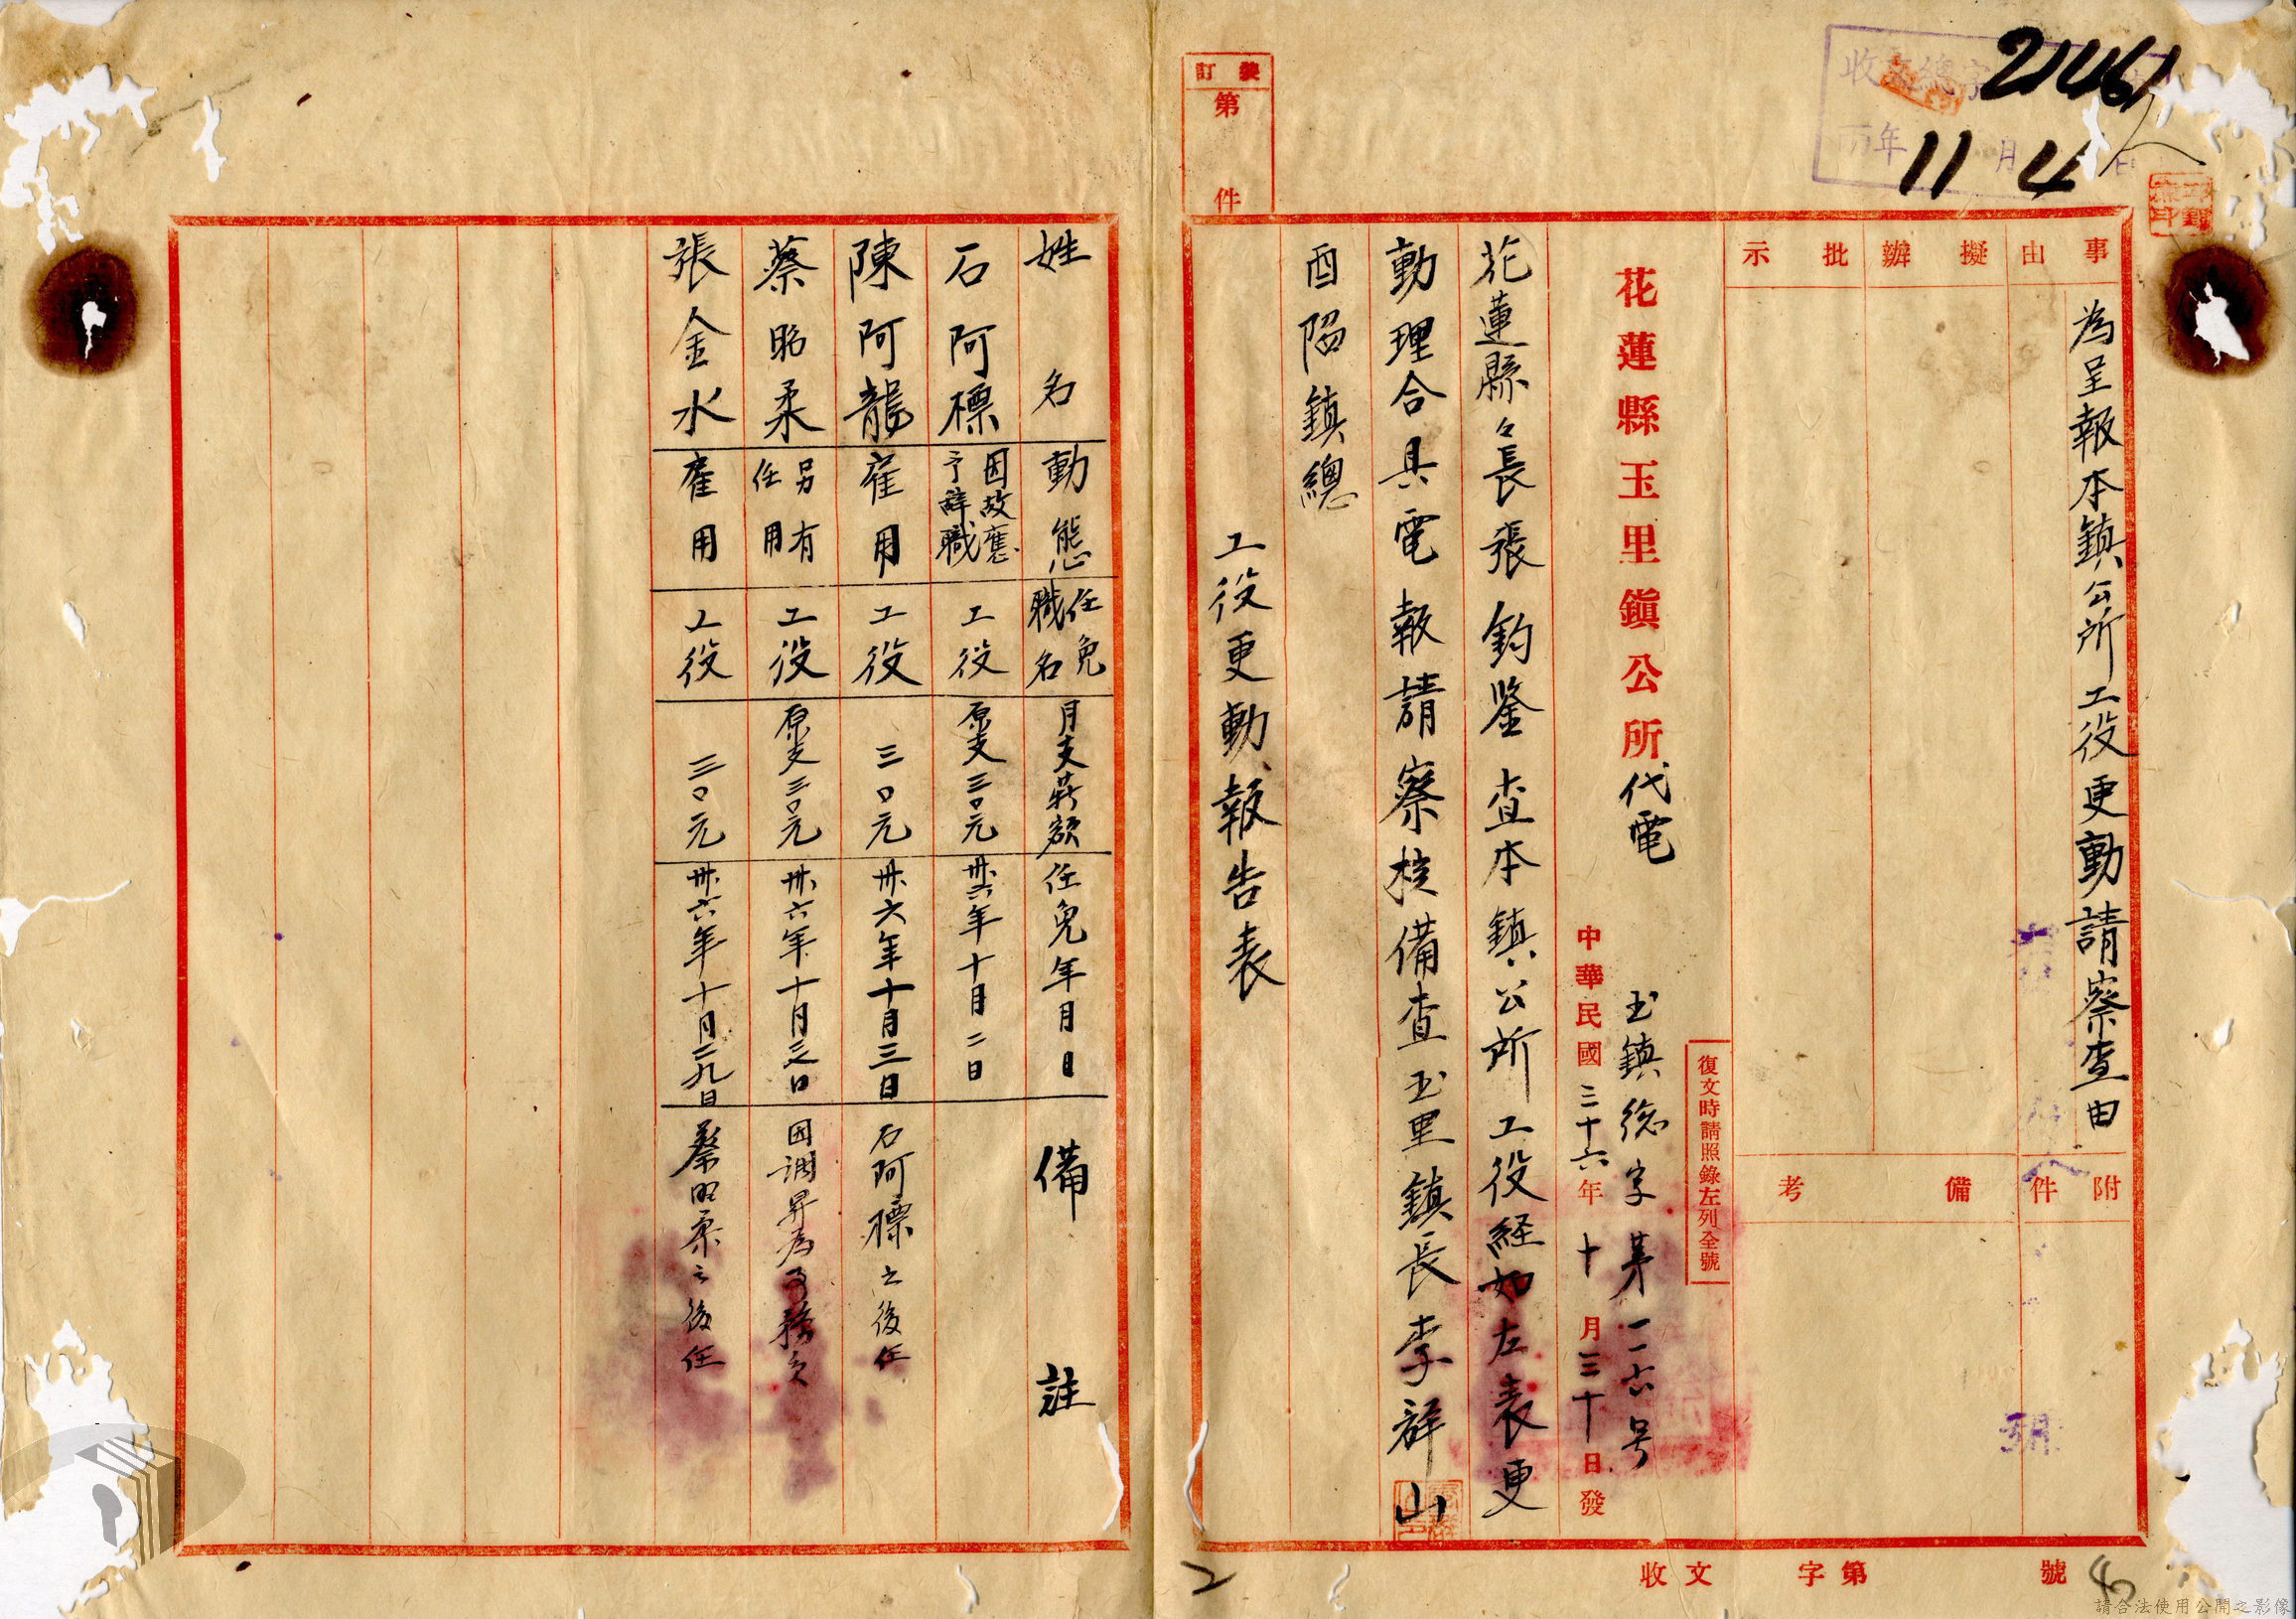 收文總字
21461
年11月4日
人
裝訂
第 件
事由
為呈報本鎮公所工役更動請察查由
擬辦
批示
附件
備考
復文時請照錄左列全號
花蓮縣玉里鎮公所代電
玉鎮総字第一一六号
中華民國三十六年十月三十日發
花蓮縣々長張 鈞鑒 查本鎮公所工役経如左表更
動理合具電報請察核備查玉里鎮長李辭山
酉陷鎮總
工役更動報告表
姓名 動態 任免職名 月支薪額 任免年月日 備註
石阿標 因故應予辭職 工役 原支三〇元 卅六年十月二日
陳阿龍 雇用 工役 三〇元 卅六年十月三日 石阿標之後任
蔡昭柔 另有任用 工役 原支三〇元 卅六年十月三日 因調昇為事務員
張金水 雇用 工役 三〇元 卅六年十月二九日 蔡昭柔之後任
收文 字第 號
2
請合法使用公開之影像